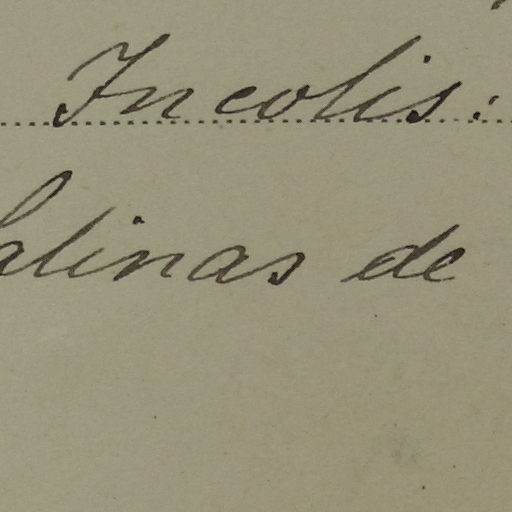 Incolis:
Salinas de